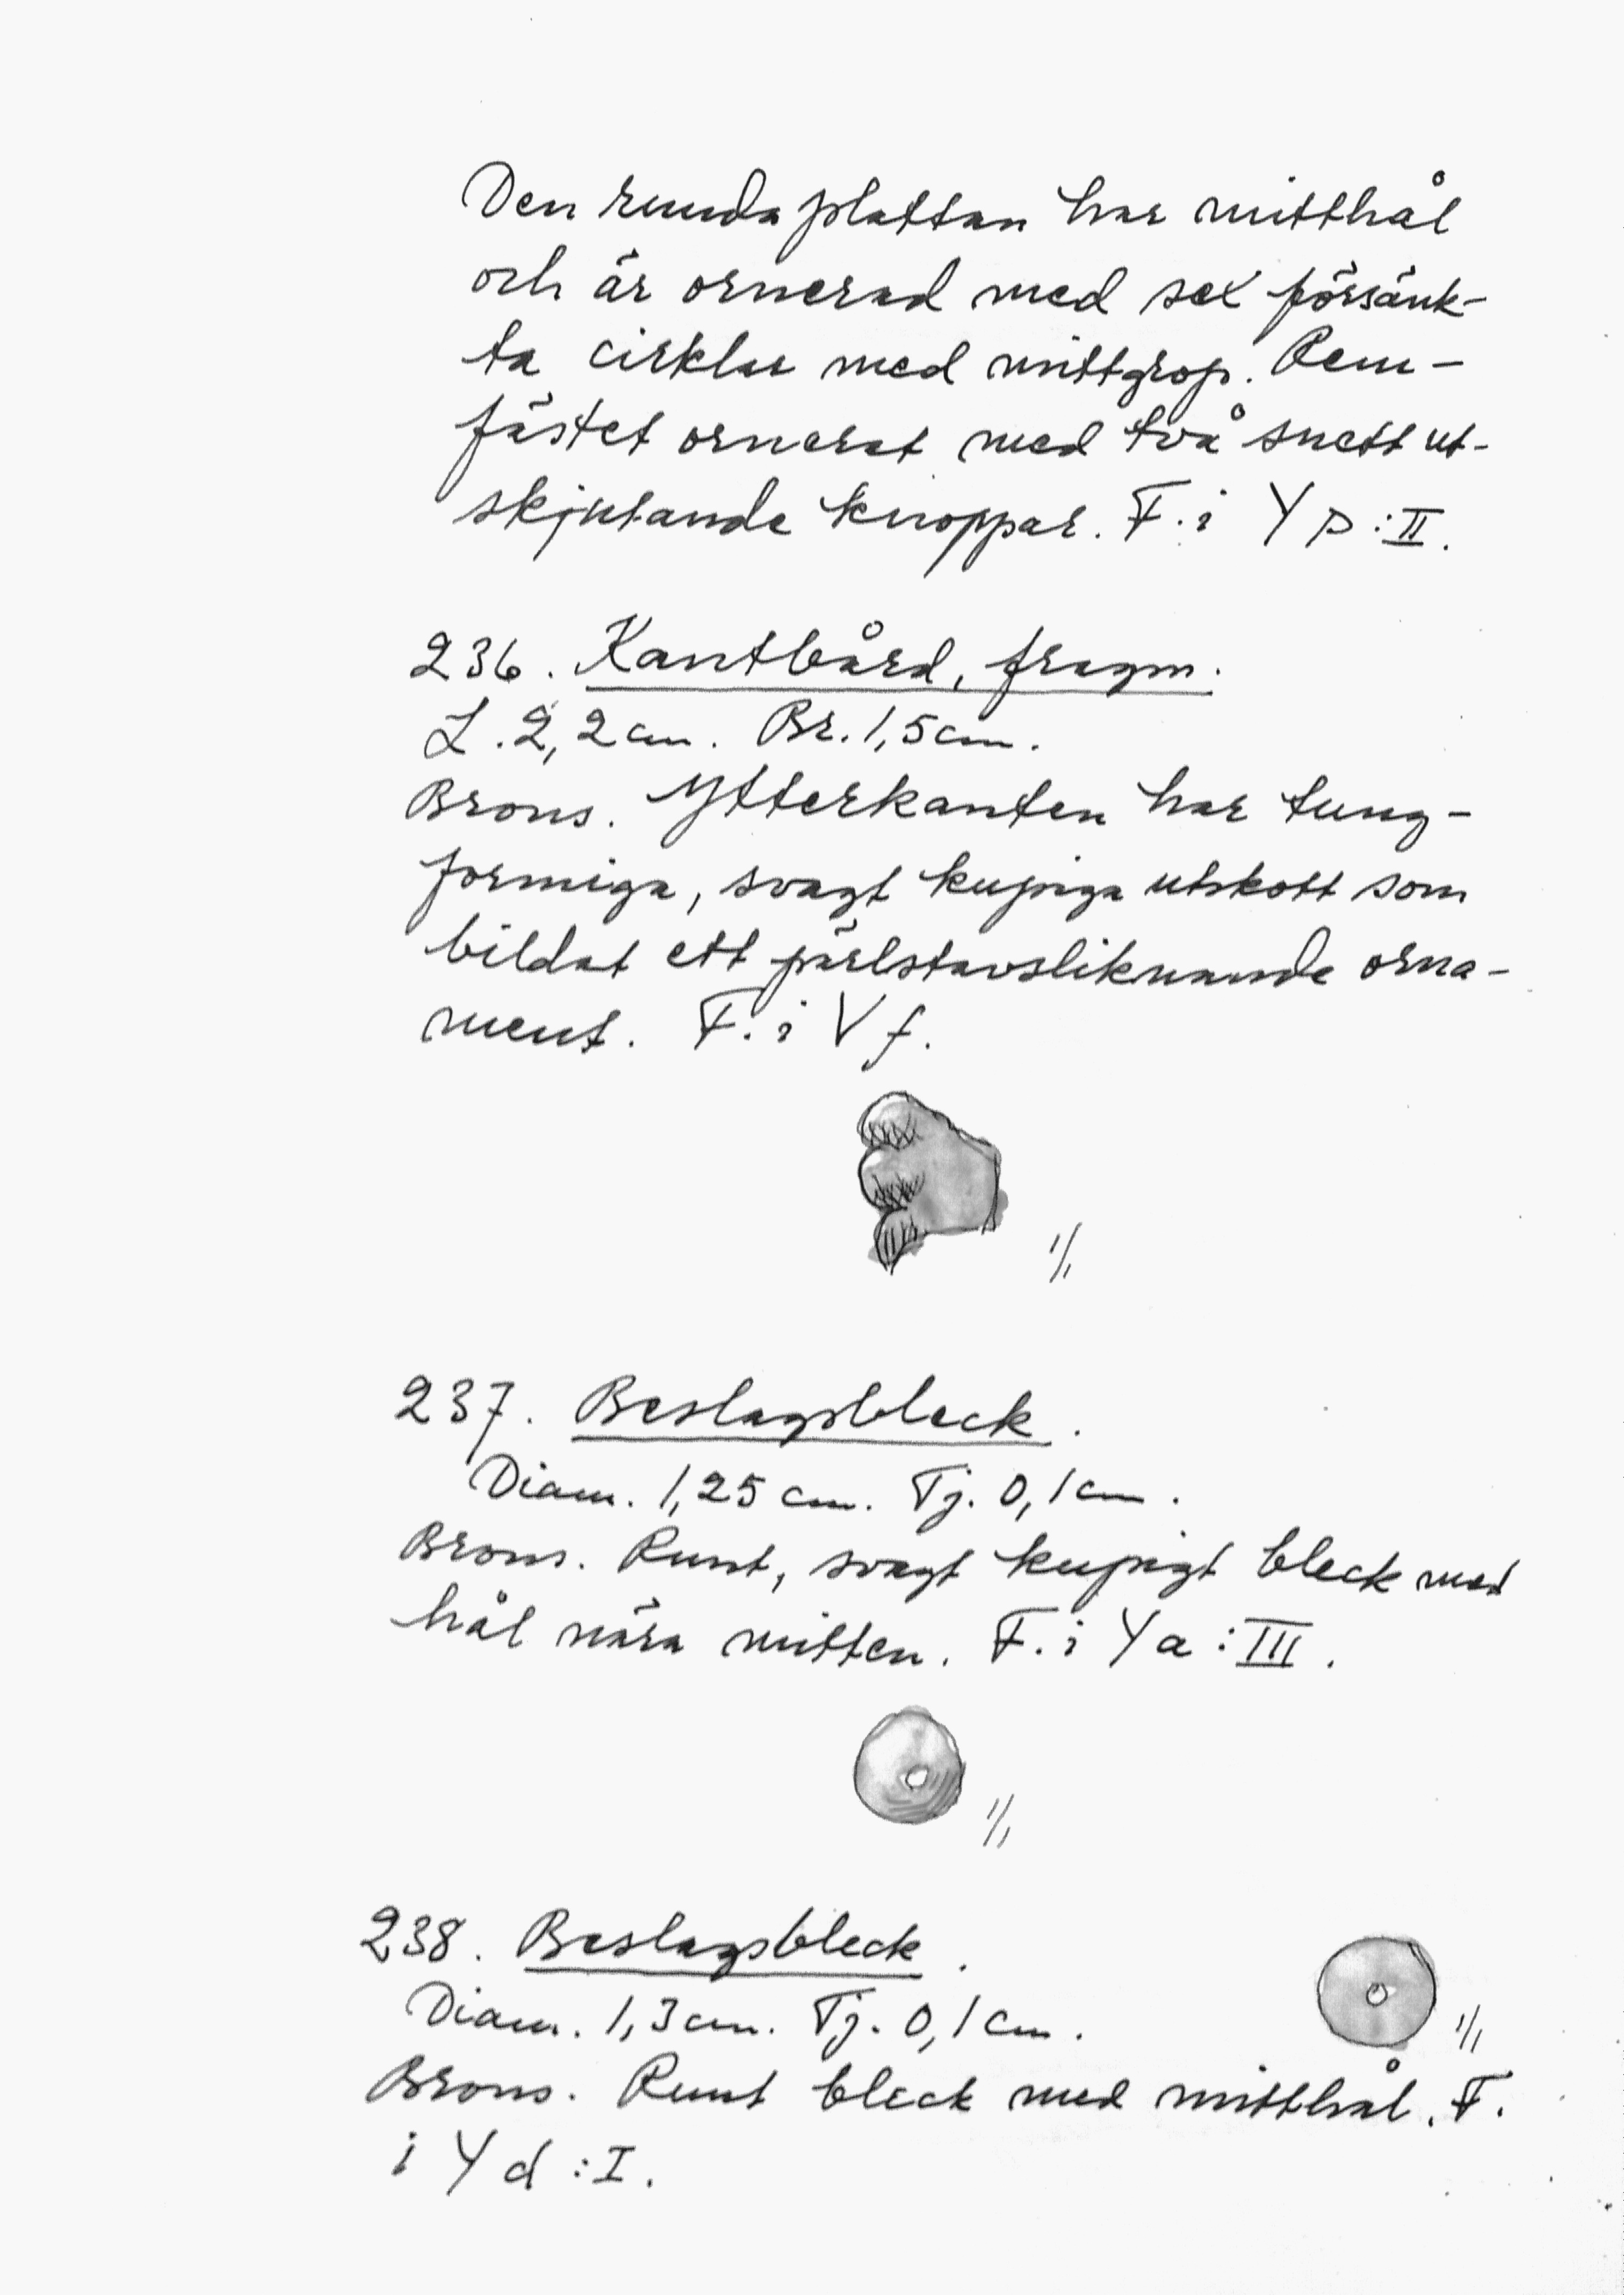 Den runda plattan har mitthål
och är ornerad med sex försänk-
ta cirklar med mittgrop. Rem-
fästet ornerat med två snett ut-
skjutande knoppar. F. i Y p :II.
236. Kantbård, fragm.
L. 2,2 cm. Br. 1,5 cm.
Brons. Ytterkanten har tung-
formiga, svagt kupiga utskott som
bildat ett pärlstavsliknande orna-
ment. F. i V f.
1/1
237. Beslagsbleck.
Diam. 1,25 cm. Tj. 0,1 cm.
Brons. Runt, svagt kupigt bleck med
hål nära mitten. F. i Y a :III.
1/1
238. Beslagsbleck.
Diam. 1,3 cm. Tj. 0,1 cm.
1/1
Brons. Runt bleck med mitthål. F.
i Y d :I.